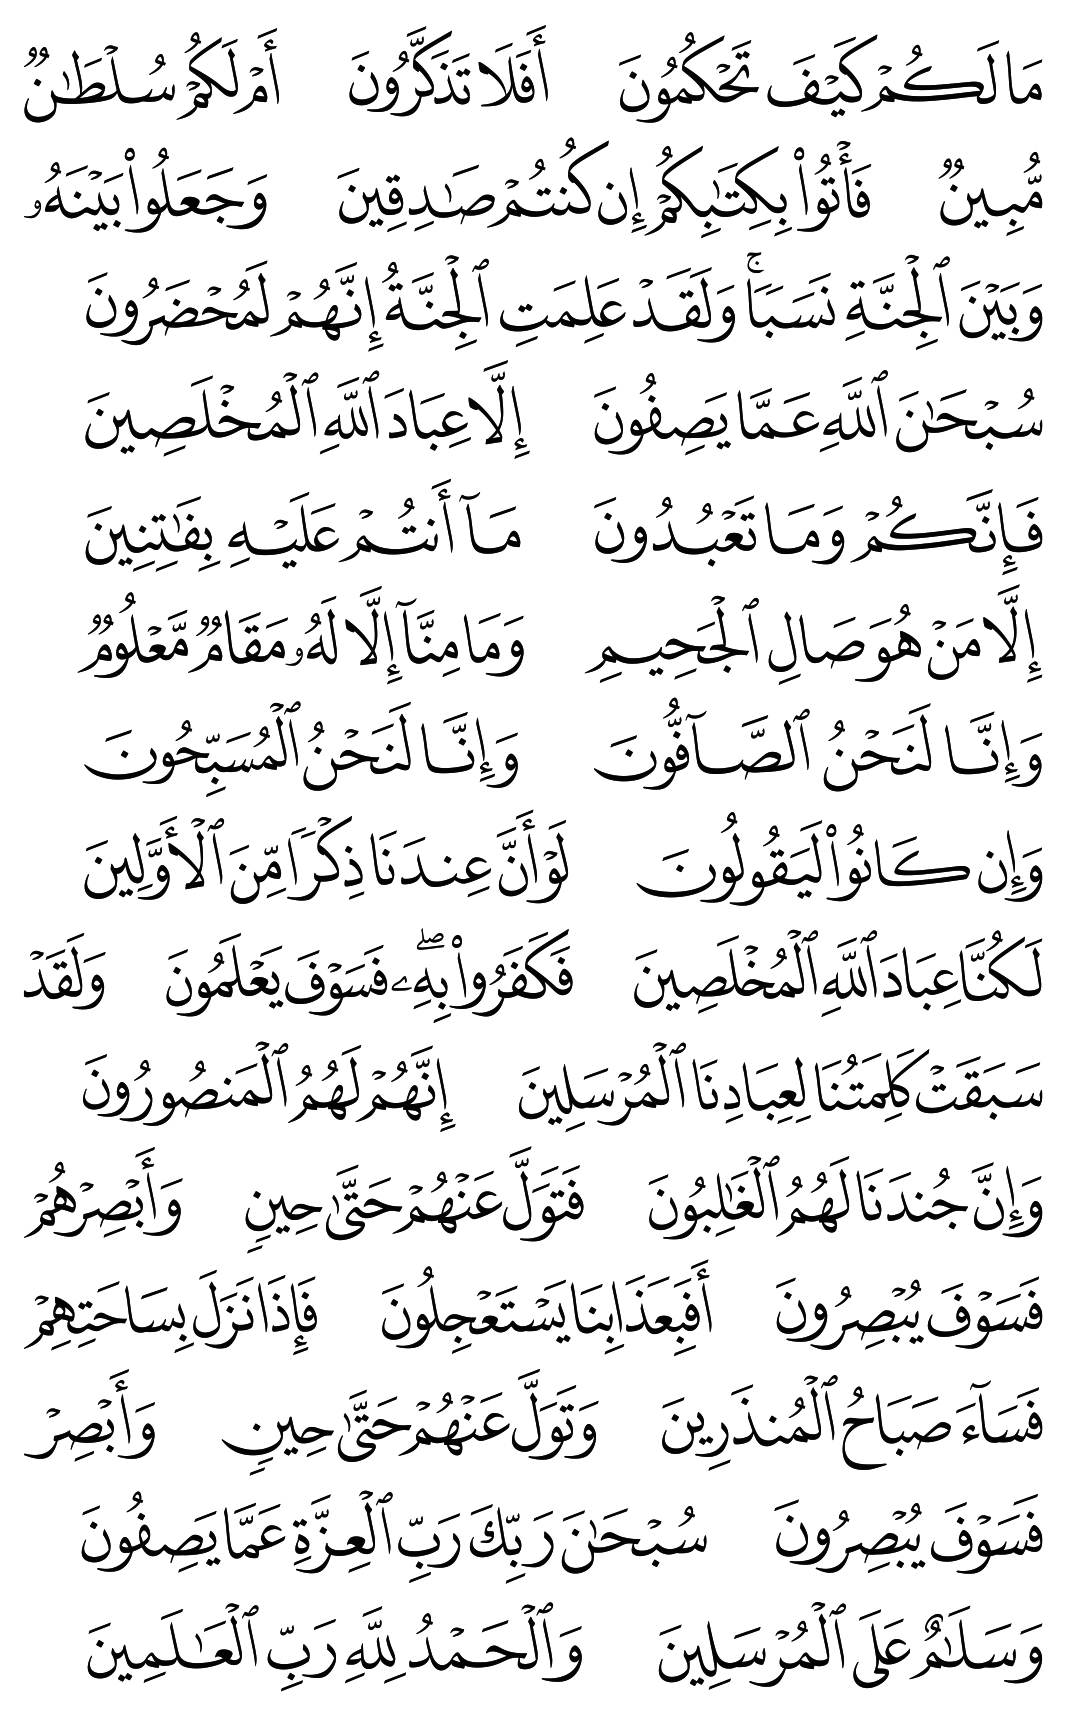 مَا لَكُمۡ كَيۡفَ تَحۡكُمُونَ أَفَلَا تَذَكَّرُونَ أَمۡ لَكُمۡ سُلۡطَٰنٞ
مُّبِينٞ فَأۡتُواْ بِكِتَٰبِكُمۡ إِن كُنتُمۡ صَٰدِقِينَ وَجَعَلُواْ بَيۡنَهُۥ
وَبَيۡنَ ٱلۡجِنَّةِ نَسَبٗاۚ وَلَقَدۡ عَلِمَتِ ٱلۡجِنَّةُ إِنَّهُمۡ لَمُحۡضَرُونَ
سُبۡحَٰنَ ٱللَّهِ عَمَّا يَصِفُونَ إِلَّا عِبَادَ ٱللَّهِ ٱلۡمُخۡلَصِينَ
فَإِنَّكُمۡ وَمَا تَعۡبُدُونَ مَآ أَنتُمۡ عَلَيۡهِ بِفَٰتِنِينَ
إِلَّا مَنۡ هُوَ صَالِ ٱلۡجَحِيمِ وَمَا مِنَّآ إِلَّا لَهُۥ مَقَامٞ مَّعۡلُومٞ
وَإِنَّا لَنَحۡنُ ٱلصَّآفُّونَ وَإِنَّا لَنَحۡنُ ٱلۡمُسَبِّحُونَ
وَإِن كَانُواْ لَيَقُولُونَ لَوۡ أَنَّ عِندَنَا ذِكۡرٗا مِّنَ ٱلۡأَوَّلِينَ
لَكُنَّا عِبَادَ ٱللَّهِ ٱلۡمُخۡلَصِينَ فَكَفَرُواْ بِهِۦۖ فَسَوۡفَ يَعۡلَمُونَ وَلَقَدۡ
سَبَقَتۡ كَلِمَتُنَا لِعِبَادِنَا ٱلۡمُرۡسَلِينَ إِنَّهُمۡ لَهُمُ ٱلۡمَنصُورُونَ
وَإِنَّ جُندَنَا لَهُمُ ٱلۡغَٰلِبُونَ فَتَوَلَّ عَنۡهُمۡ حَتَّىٰ حِينٖ وَأَبۡصِرۡهُمۡ
فَسَوۡفَ يُبۡصِرُونَ أَفَبِعَذَابِنَا يَسۡتَعۡجِلُونَ فَإِذَا نَزَلَ بِسَاحَتِهِمۡ
فَسَآءَ صَبَاحُ ٱلۡمُنذَرِينَ وَتَوَلَّ عَنۡهُمۡ حَتَّىٰ حِينٖ وَأَبۡصِرۡ
فَسَوۡفَ يُبۡصِرُونَ سُبۡحَٰنَ رَبِّكَ رَبِّ ٱلۡعِزَّةِ عَمَّا يَصِفُونَ
وَسَلَٰمٌ عَلَى ٱلۡمُرۡسَلِينَ وَٱلۡحَمۡدُ لِلَّهِ رَبِّ ٱلۡعَٰلَمِينَ